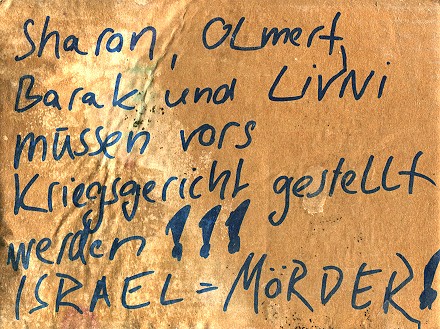 Sharon, OLmert,
Barak und LIVNI
müssen vors
Kriegsgericht gestellt
werden !!!
ISRAEL = MÖRDER!